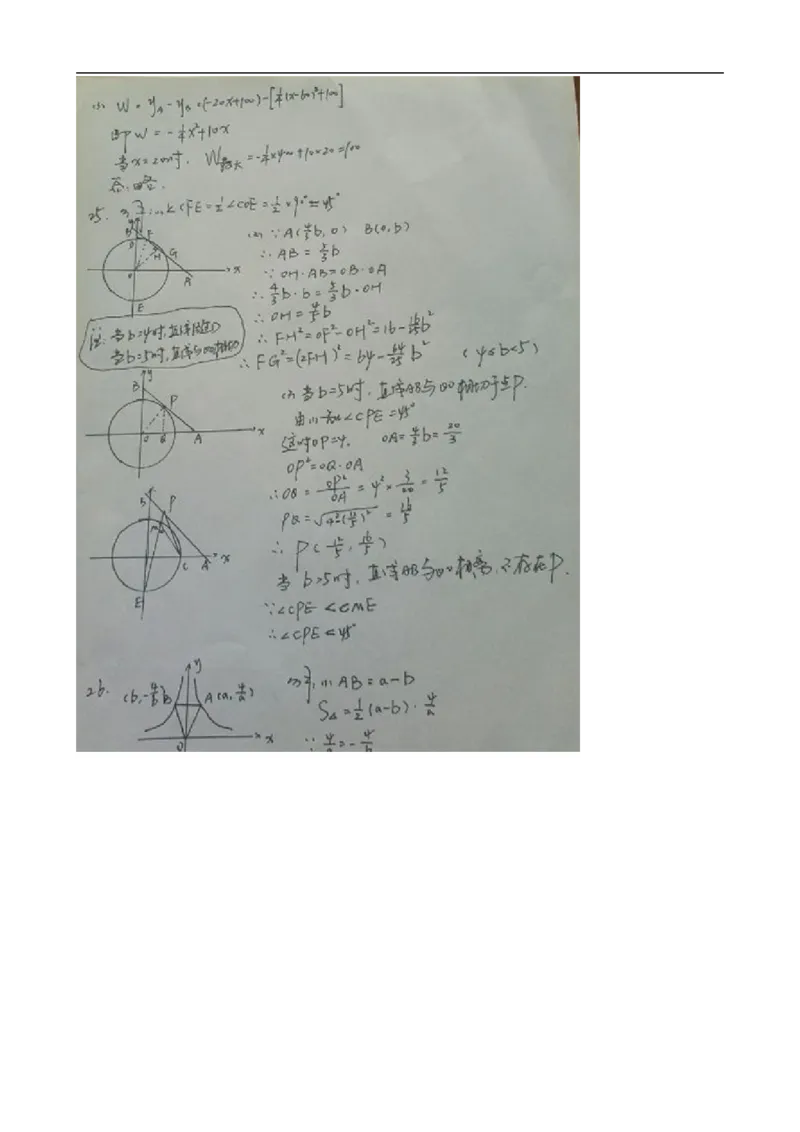 (3) W=y_A-y_B=(-20x+100)-[¼(x-60)²+100]
即W=-¼x²+10x
当x=20时, W最大=-¼×400+10×20=100
答:略.
25. ∠CFE=½∠COE=½×90°=45°
(2) ∵A(4/3 b, 0) B(0, b)
∴AB=5/3 b
∵OH·AB=OB·OA
∴4/3 b·b=5/3 b·OH
∴OH=4/5 b
∴FH²=OF²-OH²=16-16/25 b²
∴FG²=(2FH)²=64-64/25 b² (4≤b<5)
注:当b=4时,直线过D
当b=5时,直线与⊙O相切
(3)当b=5时, 直线AB与⊙O相切于点P.
由(1)知∠CPE=45°
这时OP=4, OA=4/3 b=20/3
OP²=OQ·OA
∴OQ=OP²/OA=4²×3/20=12/5
PQ=√4²-(12/5)²=16/5
∴P(12/5, 16/5)
当b>5时, 直线AB与⊙O相离, 不存在P.
∵∠CPE<∠CME
∴∠CPE<45°
26. (b,-4/b)B A(a,4/a)
(1) AB=a-b
S△=½(a-b)·4/a
∵4/a=-4/b